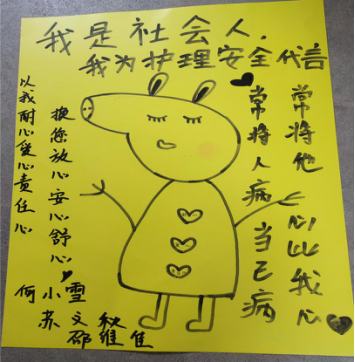 我是社会人.
我为护理安全代言
以我耐心爱心责任心
换您放心安心舒心
常将人病当己病
常将他心比我心
何小雪
苏文秋
邵维佳